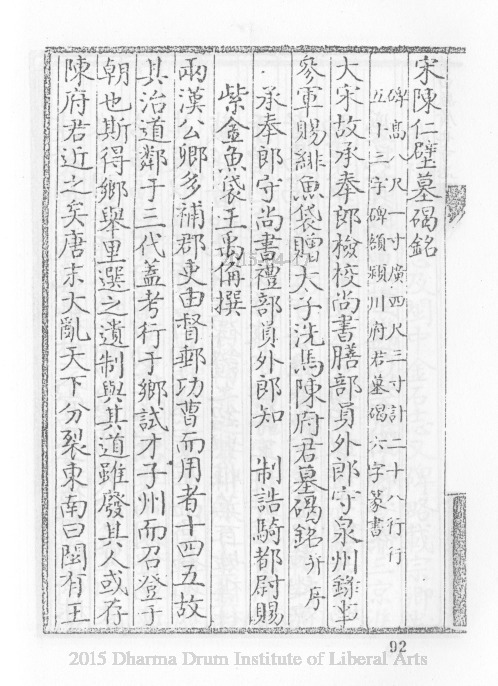 宋陳仁璧墓碣銘
碑高八尺一寸廣四尺三寸計二十八行行
五十三字碑額潁川府君墓碣六字篆書
大宋故承奉郎檢校尚書膳部員外郎守泉州錄事
參軍賜緋魚袋贈太子洗馬陳府君墓碣銘并序
承奉郎守尚書禮部員外郎知 制誥騎都尉賜
紫金魚袋王禹偁撰
兩漢公卿多補郡吏由督郵功曹而用者十四五故
其治道鄰于三代蓋考行于鄉試才于州而召登于
朝也斯得鄉舉里選之遺制與其道雖廢其人或存
陳府君近之矣唐末大亂天下分裂東南曰閩有王
92
2015 Dharma Drum Institute of Liberal Arts